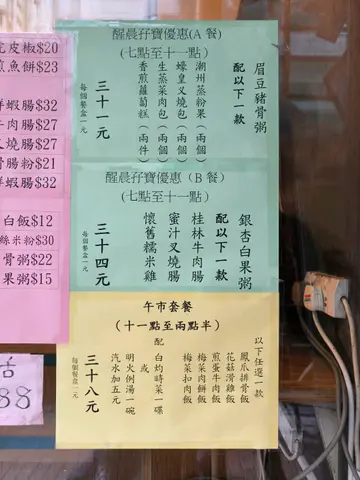 芫皮椒$20
煎魚餅$23
鮮蝦腸$32
牛肉腸$27
叉燒腸$27
滑腸粉$21
鮮蝦腸$32
白飯$12
絲米粉$30
骨粥$22
果粥$15
活
88
醒晨孖寶優惠(A餐)
(七點至十一點)
眉豆豬骨粥
配以下一款
潮州蒸粉果(兩個)
蠔皇叉燒包(兩個)
生菜蒸肉包(兩個)
香煎蘿蔔糕(兩件)
三十一元
每個餐盒一元
醒晨孖寶優惠(B餐)
(七點至十一點)
銀杏白果粥
配以下一款
桂林牛肉腸
蜜汁叉燒腸
懷舊糯米雞
三十四元
每個餐盒一元
午市套餐
(十一點至兩點半)
以下任選一款
鳳爪排骨飯
花菇滑雞飯
煎蛋牛肉飯
梅菜肉餅飯
梅菜扣肉飯
配
白灼時菜一碟
或
明火例湯一碗
汽水加五元
三十八元
每個餐盒一元